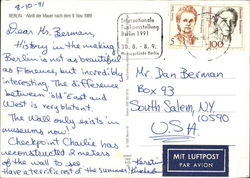 8-10-91
BERLIN - Abriß der Mauer nach dem 9. Nov. 1989
Dear Mr. Berman,
History in the making
Berlin is not as beautiful
as Florence, but incredibly
interesting. The difference
between "old" East and
West is very blatant.
The Wall only exists in
museums now!
Checkpoint Charlie has
reconstructed 2 meters
of the wall to see
Have a terrific rest of the summer!
Internationale
Funkausstellung
Berlin 1991
30.8. - 8.9.
100
Mr. Dan Berman
Box 93
South Salem, NY
10590
U.S.A.
MIT LUFTPOST
PAR AVION